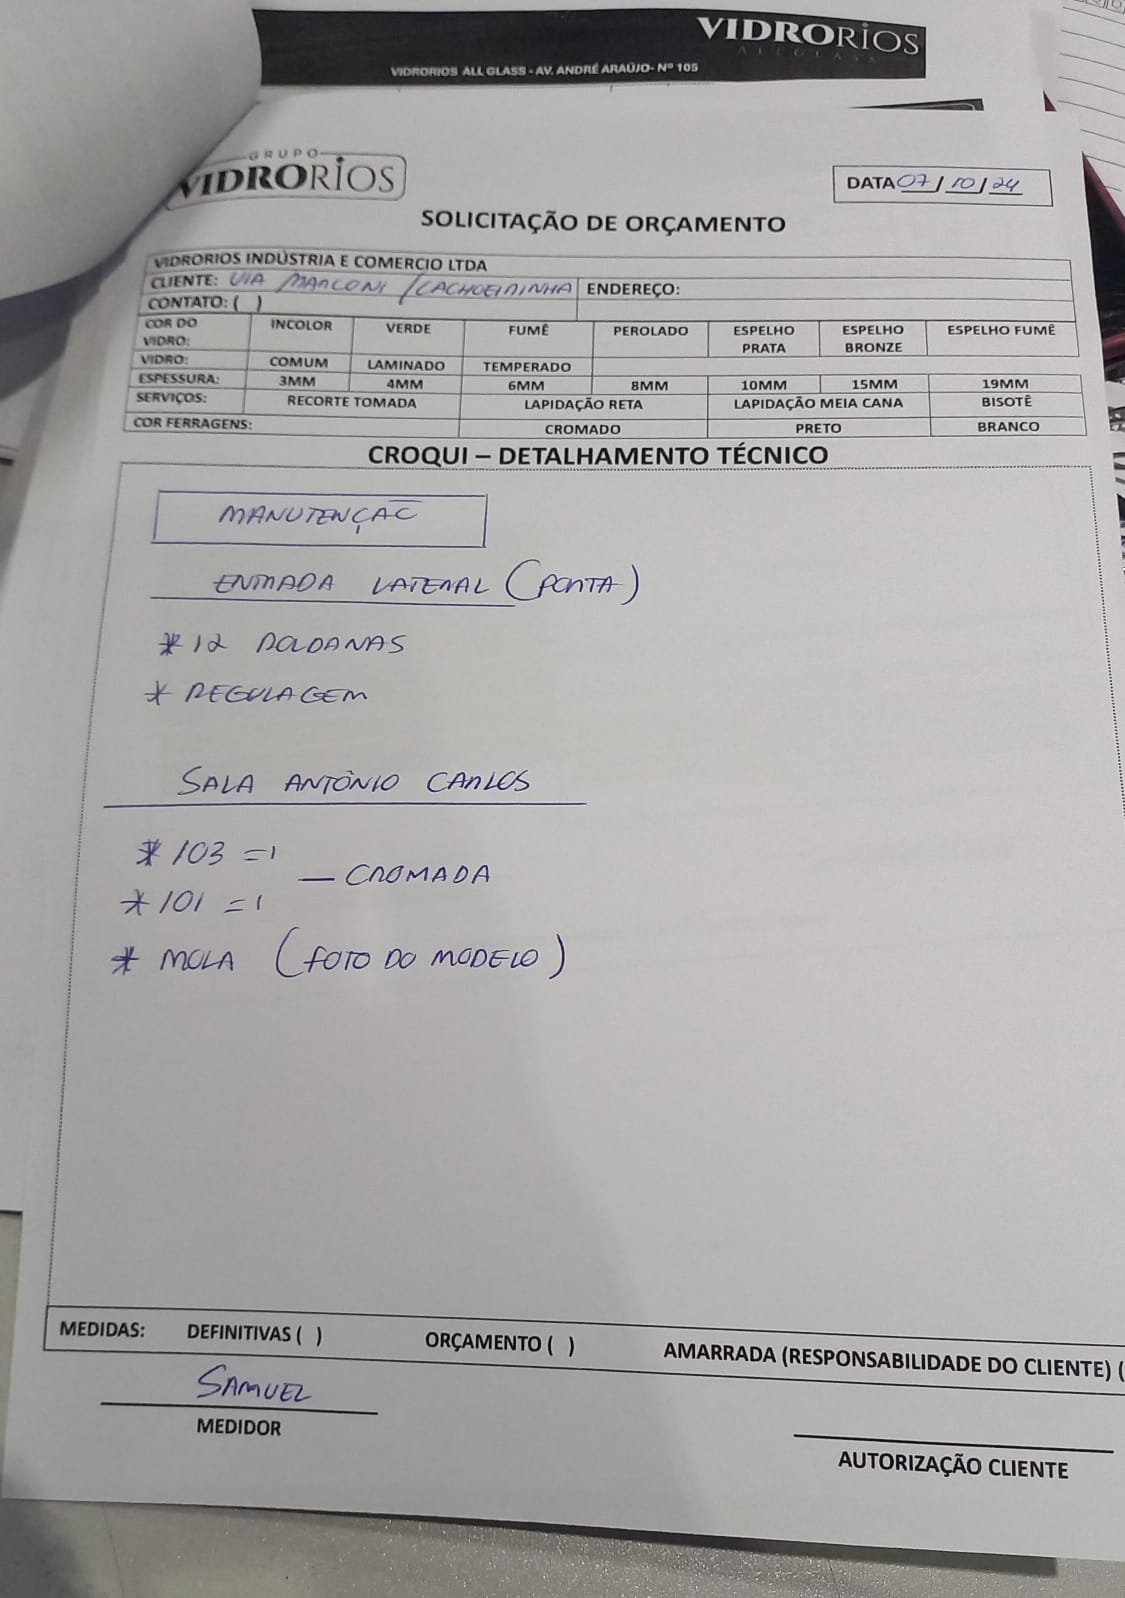 VIDRORIOS
ALL GLASS
VIDRORIOS ALL GLASS - AV. ANDRÉ ARAÚJO- Nº 105
GRUPO
VIDRORIOS
DATA 07/10/24
SOLICITAÇÃO DE ORÇAMENTO
VIDRORIOS INDÚSTRIA E COMERCIO LTDA
CLIENTE: VIA MARCONI / CACHOEIRINHA ENDEREÇO:
CONTATO: ( )
COR DO VIDRO: INCOLOR VERDE FUMÊ PEROLADO ESPELHO PRATA ESPELHO BRONZE ESPELHO FUMÊ
VIDRO: COMUM LAMINADO TEMPERADO
ESPESSURA: 3MM 4MM 6MM 8MM 10MM 15MM 19MM
SERVIÇOS: RECORTE TOMADA LAPIDAÇÃO RETA LAPIDAÇÃO MEIA CANA BISOTÊ
COR FERRAGENS: CROMADO PRETO BRANCO
CROQUI – DETALHAMENTO TÉCNICO
MANUTENÇÃO
ENTRADA LATERAL (PORTA)
* 12 ROLDANAS
* REGULAGEM
SALA ANTÔNIO CARLOS
* 103 = 1
— CROMADA
* 101 = 1
* MOLA (FOTO DO MODELO)
MEDIDAS: DEFINITIVAS ( ) ORÇAMENTO ( ) AMARRADA (RESPONSABILIDADE DO CLIENTE) (
SAMUEL
MEDIDOR
AUTORIZAÇÃO CLIENTE